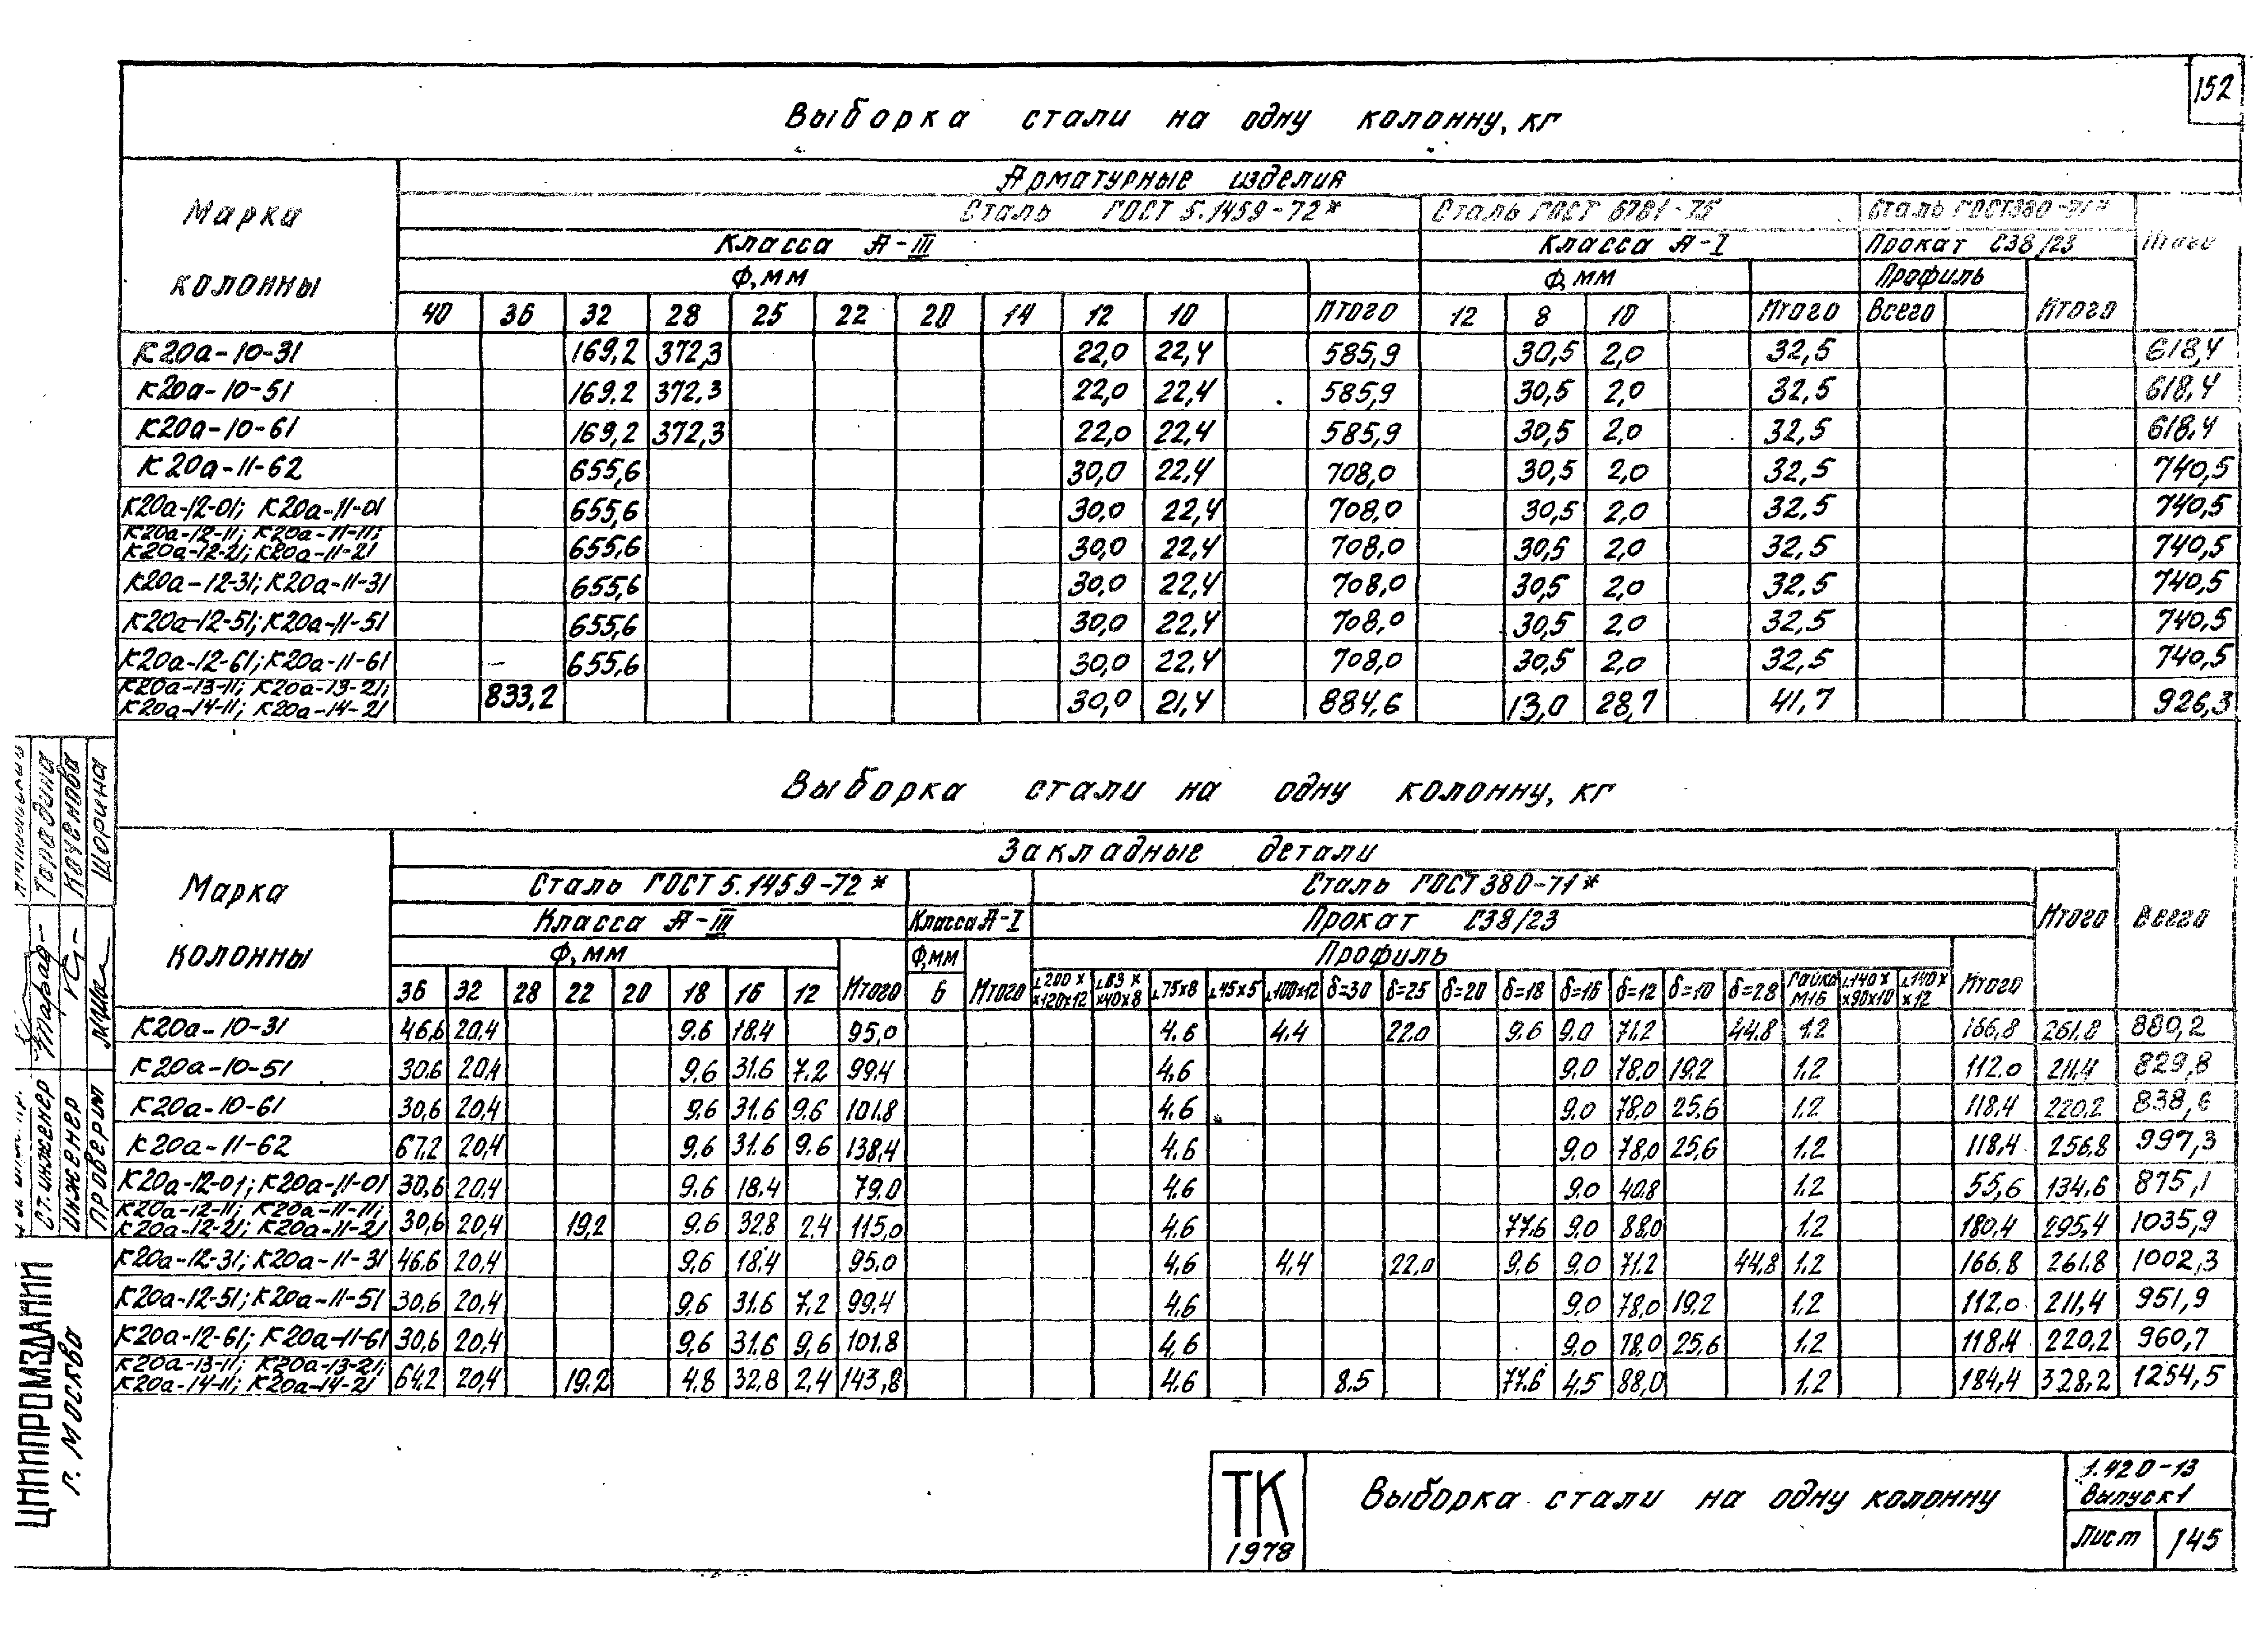 152
Выборка стали на одну колонну, кг
Марка колонны
Арматурные изделия
Сталь ГОСТ 5.1459-72* Сталь ГОСТ 5781-75 Сталь ГОСТ380-71* Итого
Класса А-III Класса А-I Прокат С38/23
Ф,мм Ф,мм Профиль
40 36 32 28 25 22 20 14 12 10 Итого 12 8 10 Итого Всего Итого
К20а-10-31 169,2 372,3 22,0 22,4 585,9 30,5 2,0 32,5 618,4
К20а-10-51 169,2 372,3 22,0 22,4 585,9 30,5 2,0 32,5 618,4
К20а-10-61 169,2 372,3 22,0 22,4 585,9 30,5 2,0 32,5 618,4
К20а-11-62 655,6 30,0 22,4 708,0 30,5 2,0 32,5 740,5
К20а-12-01; К20а-11-01 655,6 30,0 22,4 708,0 30,5 2,0 32,5 740,5
К20а-12-11; К20а-11-11;
К20а-12-21; К20а-11-21 655,6 30,0 22,4 708,0 30,5 2,0 32,5 740,5
К20а-12-31; К20а-11-31 655,6 30,0 22,4 708,0 30,5 2,0 32,5 740,5
К20а-12-51; К20а-11-51 655,6 30,0 22,4 708,0 30,5 2,0 32,5 740,5
К20а-12-61; К20а-11-61 655,6 30,0 22,4 708,0 30,5 2,0 32,5 740,5
К20а-13-11; К20а-13-21;
К20а-14-11; К20а-14-21 833,2 30,0 21,4 884,6 13,0 28,7 41,7 926,3
Выборка стали на одну колонну, кг
Марка колонны
Закладные детали
Сталь ГОСТ 5.1459-72* Сталь ГОСТ 380-71* Итого Всего
Класса А-III Класса А-I Прокат С38/23
Ф,мм Ф,мм Профиль
36 32 28 22 20 18 16 12 Итого 6 Итого ∟200××120×12 ∟83××40×8 ∟75×8 ∟45×5 ∟100×12 δ=30 δ=25 δ=20 δ=18 δ=16 δ=12 δ=10 δ=28 Гайка М16 ∟140××90×10 ∟140××12 Итого
К20а-10-31 46,6 20,4 9,6 18,4 95,0 4,6 4,4 22,0 9,6 9,0 71,2 44,8 1,2 166,8 261,8 880,2
К20а-10-51 30,6 20,4 9,6 31,6 7,2 99,4 4,6 9,0 78,0 19,2 1,2 112,0 211,4 829,8
К20а-10-61 30,6 20,4 9,6 31,6 9,6 101,8 4,6 9,0 78,0 25,6 1,2 118,4 220,2 838,6
К20а-11-62 67,2 20,4 9,6 31,6 9,6 138,4 4,6 9,0 78,0 25,6 1,2 118,4 256,8 997,3
К20а-12-01; К20а-11-01 30,6 20,4 9,6 18,4 79,0 4,6 9,0 40,8 1,2 55,6 134,6 875,1
К20а-12-11; К20а-11-11;
К20а-12-21; К20а-11-21 30,6 20,4 19,2 9,6 32,8 2,4 115,0 4,6 77,6 9,0 88,0 1,2 180,4 295,4 1035,9
К20а-12-31; К20а-11-31 46,6 20,4 9,6 18,4 95,0 4,6 4,4 22,0 9,6 9,0 71,2 44,8 1,2 166,8 261,8 1002,3
К20а-12-51; К20а-11-51 30,6 20,4 9,6 31,6 7,2 99,4 4,6 9,0 78,0 19,2 1,2 112,0 211,4 951,9
К20а-12-61; К20а-11-61 30,6 20,4 9,6 31,6 9,6 101,8 4,6 9,0 78,0 25,6 1,2 118,4 220,2 960,7
К20а-13-11; К20а-13-21;
К20а-14-11; К20а-14-21 64,2 20,4 19,2 4,8 32,8 2,4 143,8 4,6 8,5 77,6 4,5 88,0 1,2 184,4 328,2 1254,5
Ст. инженер
Инженер
Проверил Шорина
ЦНИИПРОМЗДАНИЙ
г. Москва
ТК
1978
Выборка стали на одну колонну
1.420-13
Выпуск 1
Лист 145